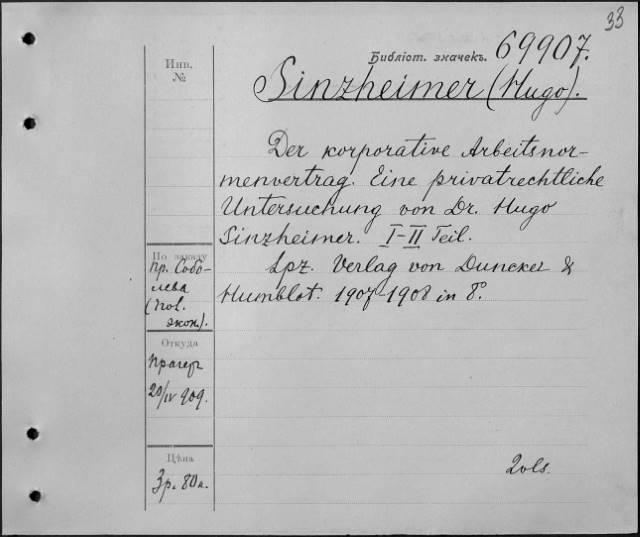 33
Библіот. значекъ. 69907.
Инв.
№
Sinzheimer (Hugo).
Der korporative Arbeitsnor-
menvertrag. Eine privatrechtliche
Untersuchung von Dr. Hugo
Sinzheimer. I-II Teil.
Lpz. Verlag von Duncker &
Humblot. 1907-1908 in 8°.
По заказу
Пр. Собо-
лева
(Pol.
экон.).
Откуда
Прагеръ
20/IV 909.
Цѣна
3 р. 80 к.
2 vls.